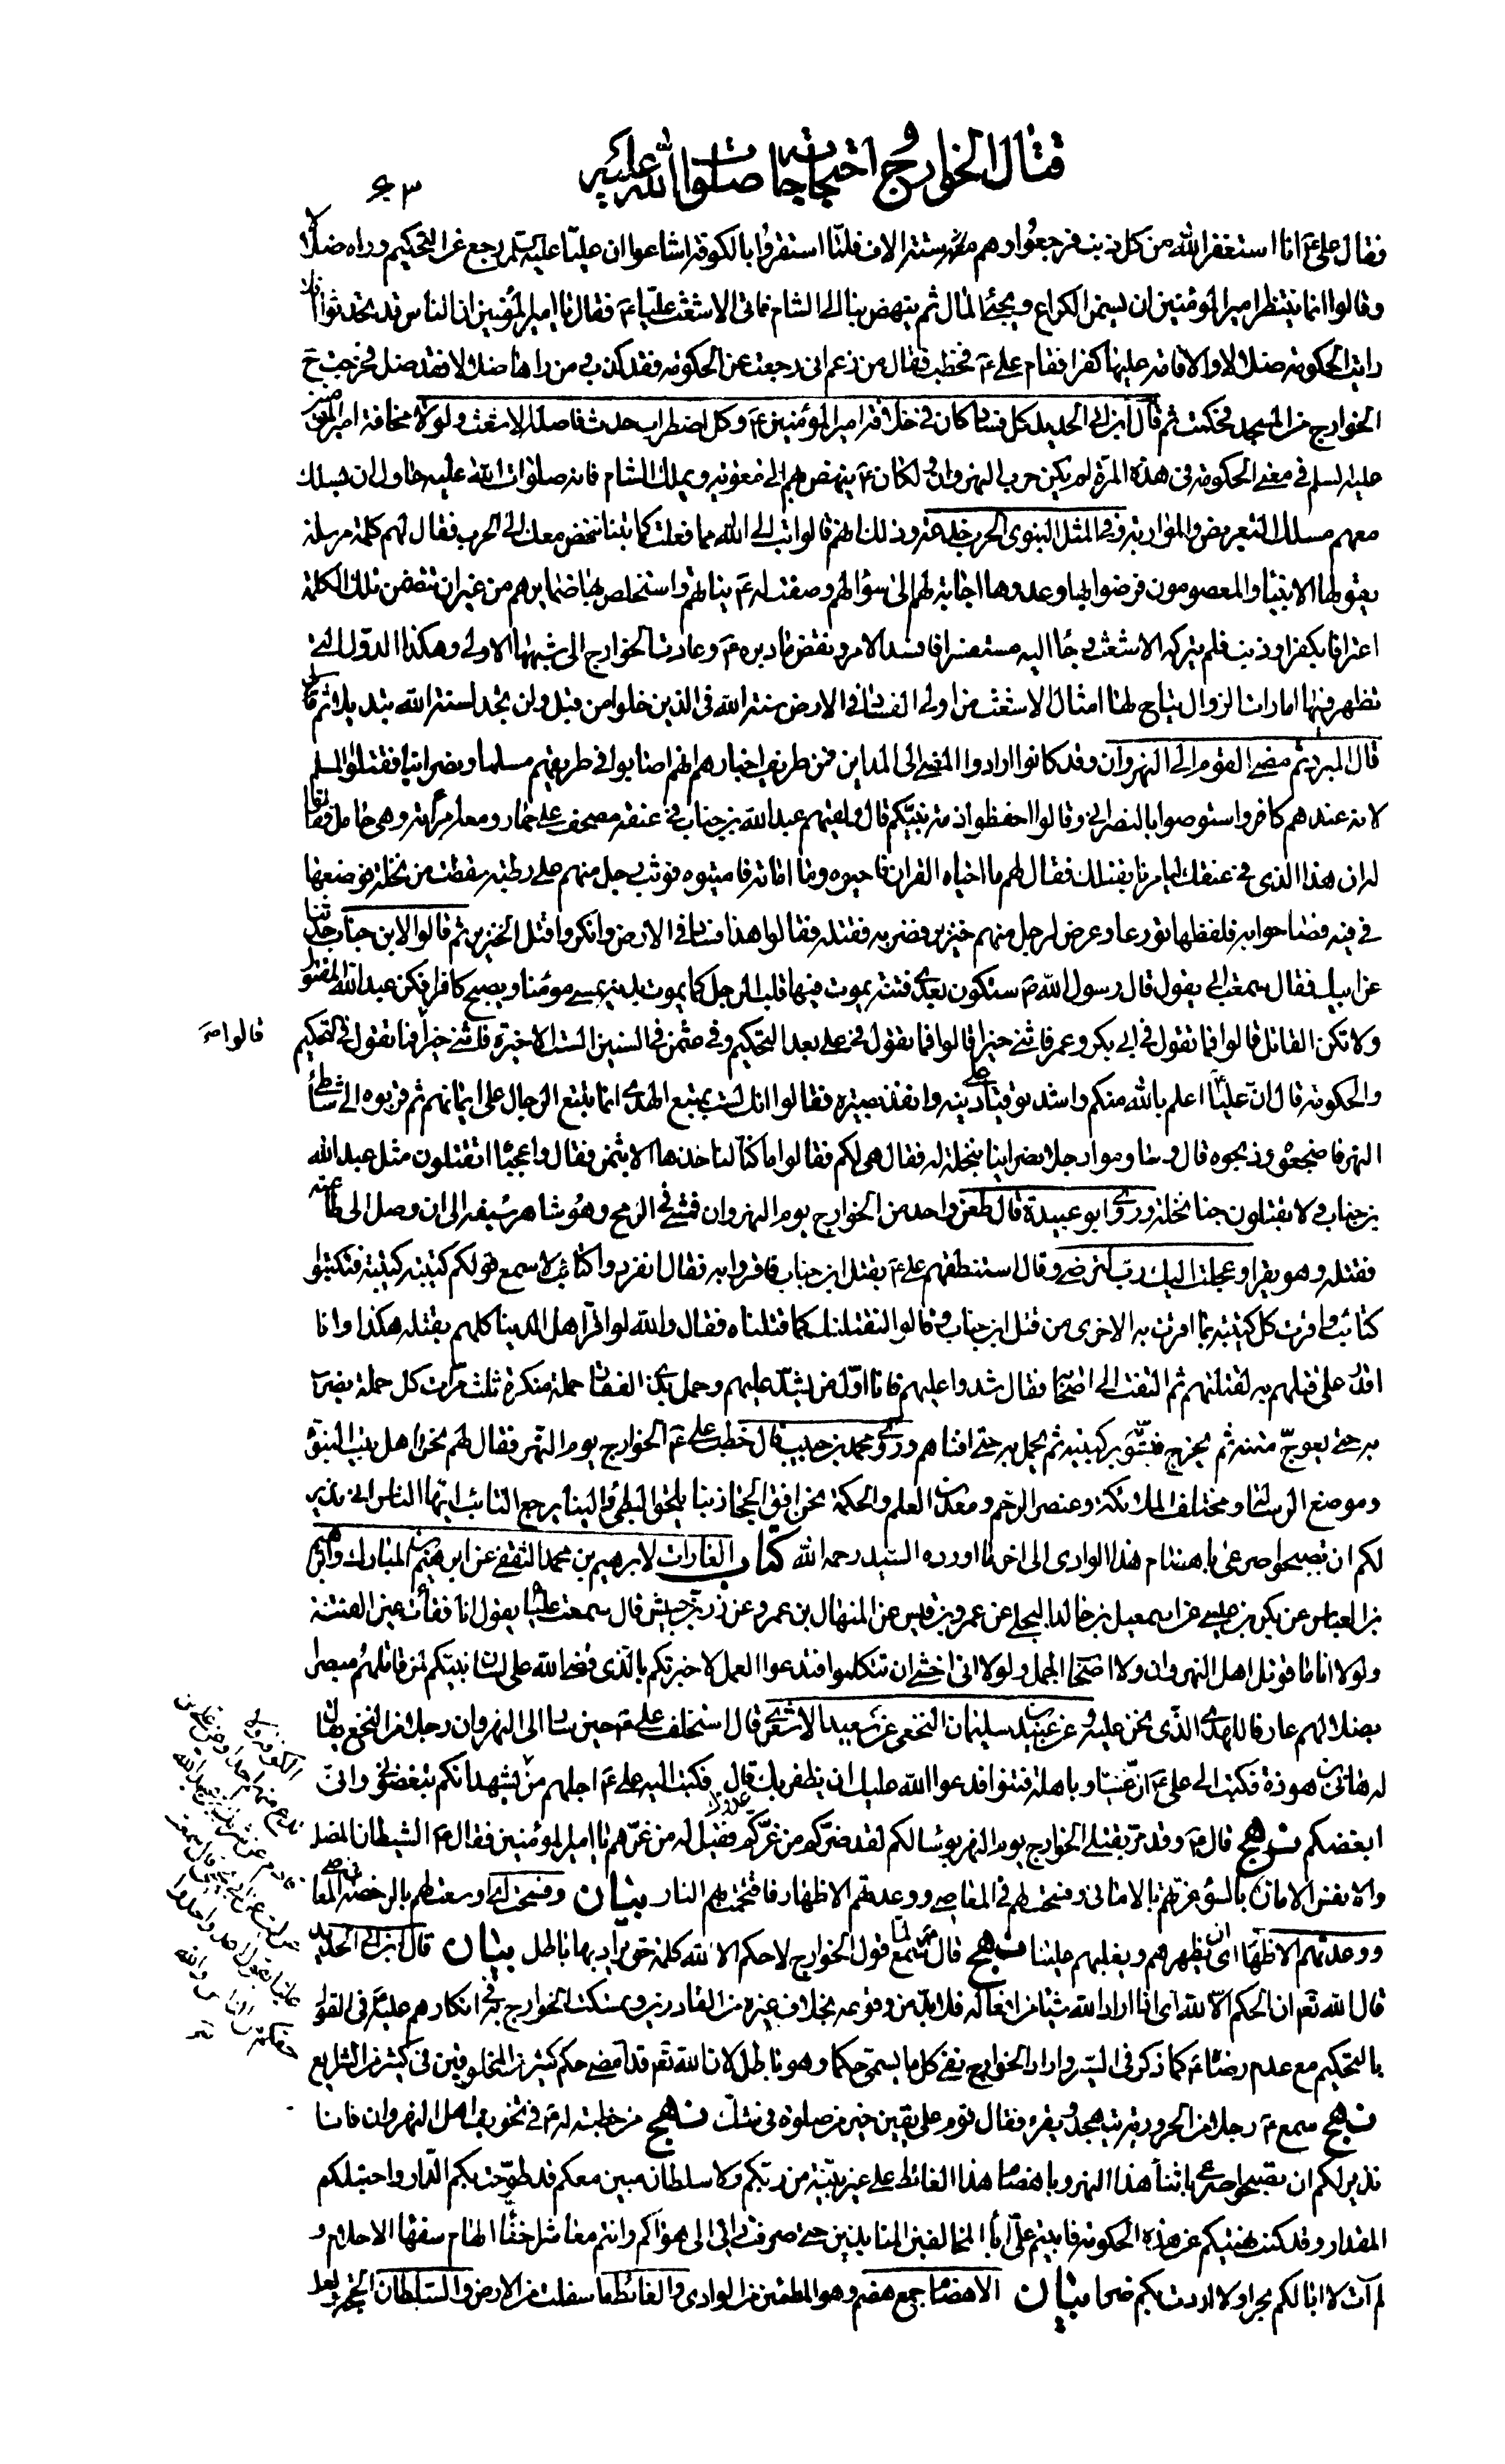 قتال الخوارج و احتجاجاته صلوات الله عليه
فقال علي ع انا استغفر الله من كل ذنب فرجعوا وهم معه ستة الاف فلما استقروا بالكوفة اشاعوا ان عليا عليه السلم رجع عن التحكيم وراه ضلالا
وقالوا انما ينتظر امير المؤمنين ان يسمن الكراع ويجئ المال ثم ينهض بنا الى الشام فاتى الاشعث عليا ع فقال يا امير المؤمنين ان الناس قد تحدثوا انك
رايت الحكومة ضلالا والاقامة عليها كفرا فقام علي ع فخطب فقال من زعم اني رجعت عن الحكومة فقد كذب و من راها ضلالا فقد ضل فخرجت ح
الخوارج من المسجد فحكمت ثم قال ابن ابي الحديد كل فساد كان في خلافة امير المؤمنين ع وكل اضطراب حدث فاصله الاشعث ولولا محاقة امير المؤمنين
عليه السلم في معنى الحكومة في هذه المرة لم يكن حرب النهروان و لكان ع ينهض بهم الى معوية ويملك الشام فانه صلوات الله عليه حاول ان يسلك
معهم مسلك التعريض والمواربة وفي المثل النبوي الحرب خدعة وذلك انهم قالوا تب الى الله مما فعلت كما تبنا ننهض معك الى الحرب فقال لهم كلمة مرسلة
يقولها الانبياء والمعصومون فرضوا بها وعدوها اجابة لهم الى سؤالهم وصفت له ع نياتهم واستخلص بها ضمايرهم من غير ان تتضمن تلك الكلمة
اعترافا بكفر او ذنب فلم يتركه الاشعث و جاء اليه مستفسرا فافسد الامر و نقض ما دبره ع وعادت الخوارج الى شبهتها الاولى وهكذا الدول التي
تظهر فيها امارات الزوال يتاح لها امثال الاشعث من اولي الفساد في الارض سنة الله في الذين خلوا من قبل ولن تجد لسنة الله تبديلا ثم قال
قال المبرد ثم مضى القوم الى النهروان وقد كانوا ارادوا المضي الى المداين فمن طريف اخبارهم انهم اصابوا في طريقهم مسلما ونصرانيا فقتلوا المسلم
لانه عندهم كافر واستوصوا بالنصراني وقالوا احفظوا ذمة نبيكم قال ولقيهم عبد الله بن خباب في عنقه مصحف على حمار ومعه امراته وهي حامل فقالوا
له ان هذا الذي في عنقك ليامرنا بقتلك فقال لهم ما احياه القران فاحيوه وما اماته فاميتوه فوثب رجل منهم على رطبة سقطت من نخلة فوضعها
في فيه فصاحوا به فلفظها تورعا وعرض لرجل منهم خنزير فضربه فقتله فقالوا هذا فساد في الارض وانكروا قتل الخنزير ثم قالوا لابن خباب حدثنا
عن ابيك فقال سمعت ابي يقول قال رسول الله ص ستكون بعدي فتنة يموت فيها قلب الرجل كما يموت بدنه يمسي مؤمنا ويصبح كافرا فكن عبد الله المقتول
ولا تكن القاتل قالوا فما تقول في ابي بكر وعمر فاثنى خيرا قالوا فما تقول في علي بعد التحكيم وفي عثمن في السنين الست الاخيرة فاثنى خيرا فما تقول في التحكيم
قالوا صح
والحكومة قال ان عليا اعلم بالله منكم واشد توقيا على دينه وانفذ بصيرة فقالوا انك لست بمتبع الهدى انما تتبع الرجال على ايمانهم ثم قربوه الى شاطئ
النهر فاضجعوه وذبحوه قال و ساوموا رجلا نصرانيا بنخلة له فقال هي لكم فقالوا ما كنا لناخذها الا بثمن فقال واعجبا اتقتلون مثل عبد الله
بن خباب و لا تقبلون جنا نخلة وروى ابو عبيدة قال طعن واحد من الخوارج يوم النهروان فمشى في الرمح وهو شاهر سيفه الى ان وصل الى طاعنه
فقتله وهو يقرا وعجلت اليك رب لترضى وقال استنطقهم علي ع بقتل ابن خباب فاقروا به فقال انفردوا كتائب لاسمع قولكم كتيبة كتيبة فتكتبوا
كتائب و اقرت كل كتيبة بما اقرت به الاخرى من قتل ابن خباب و قالوا لنقتلنك كما قتلناه فقال والله لو اقر اهل الدنيا كلهم بقتله هكذا وانا
اقدر على قتلهم به لقتلتهم ثم التفت الى اصحابه فقال شدوا عليهم فانا اول من يشد عليهم وحمل بذي الفقار حملة منكرة ثلث مرات كل حملة يضرب
به حتى يعوج متنه ثم يخرج فيسويه بركبتيه ثم يحمل به حتى افناهم وروى محمد بن حبيب قال خطب علي ع الخوارج يوم النهر فقال لهم نحن اهل بيت النبوة
وموضع الرسالة ومختلف الملائكة وعنصر الرحمة ومعدن العلم والحكمة نحن افق الحجاز بنا يلحق البطئ والينا يرجع التائب ايها الناس اني نذير
لكم ان تصبحوا صرعى باهضام هذا الوادي الى اخر ما اورده السيد رحمه الله كتاب الغارات لابرهيم بن محمد الثقفي عن ابرهيم بن المبارك وابرهيم
بن العباس عن بكر بن عيسى عن اسمعيل بن خالد البجلي عن عمرو بن قيس عن المنهال بن عمرو عن زر بن حبيش قال سمعت عليا ع يقول انا فقأت عين الفتنة
ولولا انا ما قوتل اهل النهروان ولا اصحاب الجمل ولولا اني اخشى ان تتكلوا فتدعوا العمل لاخبرتكم بالذي قضى الله على لسان نبيكم لمن قاتلهم مبصرا
بضلالتهم عارفا للهدى الذي نحن عليه و عن عبيد بن سليمان النخعي عن سعيد الاشعري قال استخلف علي ع حين سار الى النهروان رجلا من النخع يقال
له هانئ بن هوذة فكتب الى علي ع ان غنيا وباهلة فتنوا فدعوا الله عليك ان يظفر بك عدوك قال فكتب اليه علي ع اجلهم من الكوفة ولا تدع منهم احدا
يشهد انكم تبغضوني واني
ابغضكم نهج قال ع وقد مر بقتلى الخوارج يوم النهر بؤسا لكم لقد ضركم من غركم فقيل له من غرهم يا امير المؤمنين فقال ع الشيطان المضل
والانفس الامارة بالسوء غرتهم بالاماني وفسحت لهم في المعاصي ووعدتهم الاظهار فاقتحمت بهم النار بيان وفسحت اي اوسعت لهم بالرخصة في المعاصي
ووعدتهم الاظهار اي ان يظهرهم ويغلبهم علينا نهج قال ع لما سمع قول الخوارج لا حكم الا لله كلمة حق يراد بها باطل بيان قال ابن ابي الحديد
قال الله تع ان الحكم الا لله اي اذا اراد الله شيئا من افعاله فلا بد من وقوعه بخلاف غيره من القادرين وتمسكت الخوارج به في انكارهم عليه ع في القول
بالتحكيم مع عدم رضائه ع كما ذكر في السير واراد الخوارج نفي كل ما يسمى حكما وهو باطل لان الله تع قد امضى حكم كثير من المخلوقين في كثير من الشرايع
نهج سمع ع رجلا من الحرورية يتهجد ويقرء فقال نوم على يقين خير من صلوة في شك نهج من خطبة له ع في تخويف اهل النهروان فانا
نذير لكم ان تصبحوا صرعى باثناء هذا النهر و باهضام هذا الغائط على غير بينة من ربكم ولا سلطان مبين معكم قد طوحت بكم الدار واحتبلكم
المقدار وقد كنت نهيتكم عن هذه الحكومة فابيتم علي اباء المخالفين المنابذين حتى صرفت رايي الى هواكم وانتم معاشر اخفاء الهام سفهاء الاحلام و
لم آت لا ابا لكم بجرا ولا اردت بكم ضرا بيان الاهضام جمع هضم وهو المطمئن من الوادي والغائط ما سفل من الارض والسلطان الحجة بعد